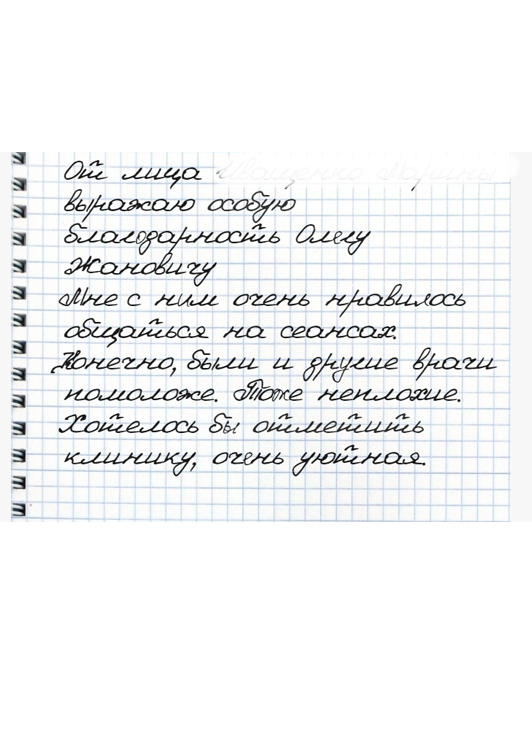 От лица
выражаю особую
благодарность Олегу
Жановичу
Мне с ним очень нравилось
общаться на сеансах.
Конечно, были и другие врачи
помоложе. Тоже неплохие.
Хотелось бы отметить
клинику, очень уютная.